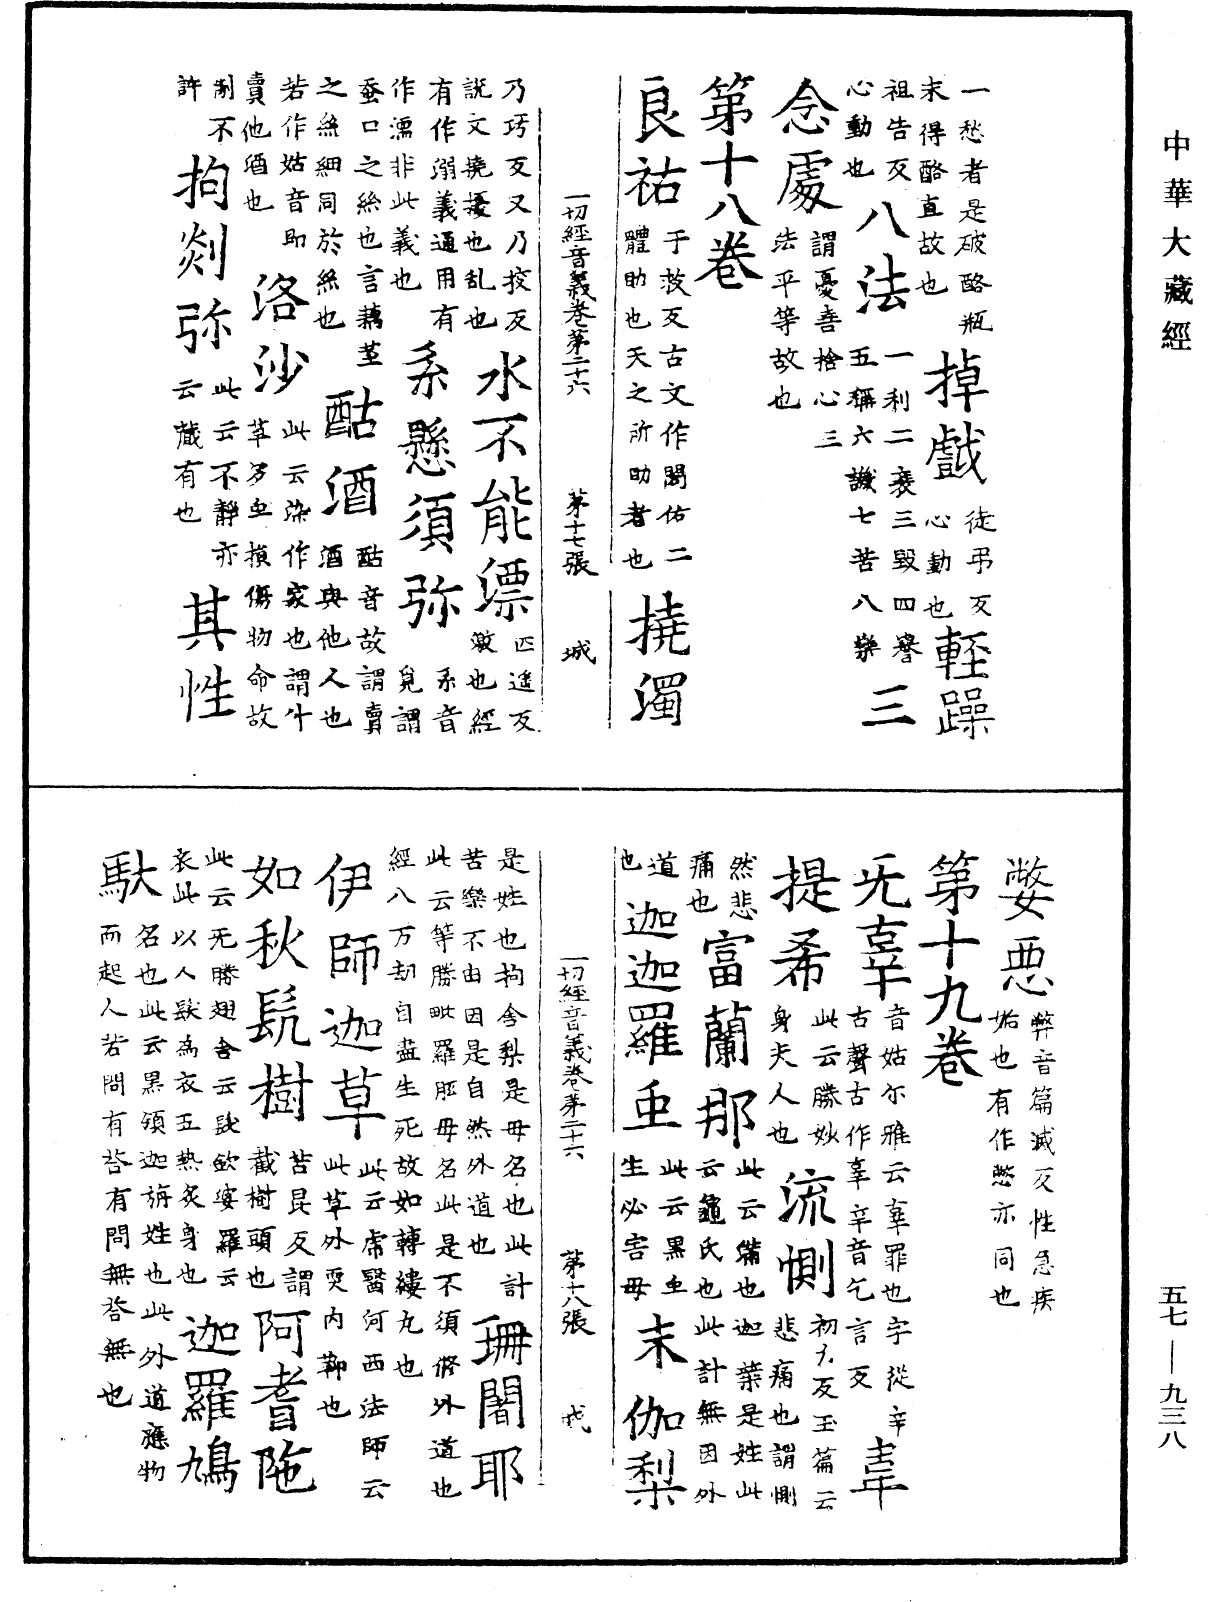 中華大藏經
一愁者是破酪瓶
末得酪直故也
掉戲
徒弔反
心動也
輕躁
祖告反
心動也
八法
一利二衰三毀四譽
五稱六譏七苦八樂
三
念處
謂憂喜捨心三
法平等故也
第十八卷
良祐
于救反古文作閎佑二
體助也天之所助者也
撓濁
一切經音義卷第二十六 第十七張 城
乃巧反又乃挍反
說文撓擾也乱也
水不能漂
匹遥反
漂也經
有作溺義通用有
作濡非此義也
糸懸須弥
糸音
覓謂
蚕口之絲也言藕莖
之絲細同於絲也
酤酒
酤音故謂賣
酒與他人也
若作姑音即
賣他酒也
洛沙
此云染作家也謂牛
草多虫損傷物命故
制不
許
拘剡弥
此云不靜亦
云藏有也
其性
弊惡
弊音篇滅反性急疾
妬也有作憋亦同也
第十九卷
无辜
音姑尔雅云辜罪也字從辛
古聲古作辜辛音乞言反
韋
提希
此云勝妙
身夫人也
流惻
初力反玉篇云
悲痛也謂惻
然悲
痛也
富蘭那
此云滿也迦葉是姓此
云龜氏也此計無因外
道
也
迦迦羅虫
此云黑虫
生必害母
末伽梨
一切經音義卷第二十六 第十八張 城
是姓也拘舍梨是母名也此計
苦樂不由因是自然外道也
珊闍耶
此云等勝毗羅胝母名此是不須修外道也
經八万劫自盡生死故如轉縷丸也
伊師迦草
此云虎醫河西法師云
此草外耎内鞕也
如秋髡樹
苦昆反謂
截樹頭也
阿耆陁
此云无勝翅舍云欽婆羅云
衣此以人髮為衣五熱炙身也
迦羅鳩
馱
名也此云黑領迦旃姓也此外道應物
而起人若問有荅有問無荅無也
五七—九三八